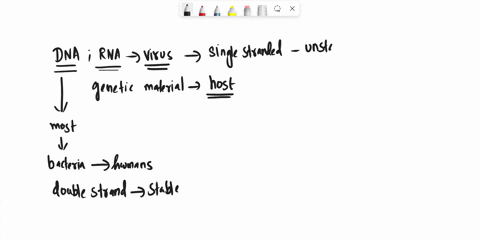 DNA ; RNA → virus → single stranded – unste
genetic material → host
most
bacteria → humans
double strand → stable